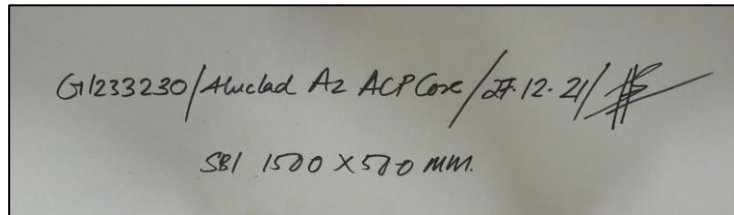 G1233230/Aluclad A2 ACP Core/27.12.21/
SBI 1500 X 500 MM.